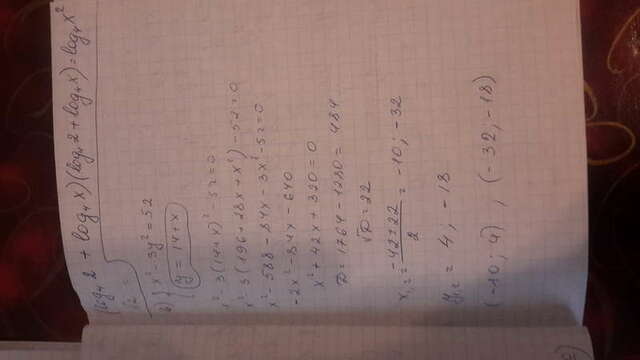 (log₄ 2 + log₄ x)(log₄ 2 + log₄ x) = log₄ x²
б) { x² - 3y² = 52
{ y = 14 + x
x² - 3(14+x)² - 52 = 0
x² - 3(196 + 28x + x²) - 52 = 0
x² - 588 - 84x - 3x² - 52 = 0
-2x² - 84x - 640
x² + 42x + 320 = 0
D = 1764 - 1280 = 484
√D = 22
x₁,₂ = (-42 ± 22)/2 = -10; -32
y₁,₂ = 4; -18
(-10; 4), (-32; -18)